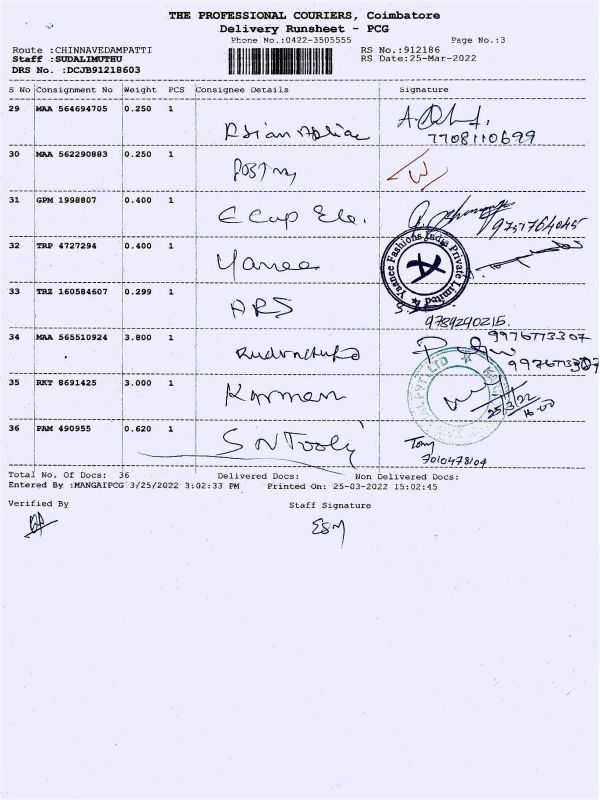 THE PROFESSIONAL COURIERS, Coimbatore
Delivery Runsheet - PCG
Phone No.:0422-3505555 Page No.:3
Route :CHINNAVEDAMPATTI RS No.:912186
Staff :SUDALIMUTHU RS Date:25-Mar-2022
DRS No. :DCJB91218603
S No Consignment No Weight PCS Consignee Details Signature
29 MAA 564694705 0.250 1
7708110699
30 MAA 562290883 0.250 1
31 GPM 1998807 0.400 1
9751764045
32 TRP 4727294 0.400 1 Yanee
Yaanee Fashions India Private Limited
33 TRZ 160584607 0.299 1 ARS
9789290215.
34 MAA 565510924 3.800 1
9976773307
9976773307
35 RKT 8691425 3.000 1
25/3/22
16-00
36 PAM 490955 0.620 1 S N Tooly
Tamy
7010478104
Total No. Of Docs: 36 Delivered Docs: Non Delivered Docs:
Entered By :MANGAIPCG 3/25/2022 3:02:33 PM Printed On: 25-03-2022 15:02:45
Verified By Staff Signature
ESM